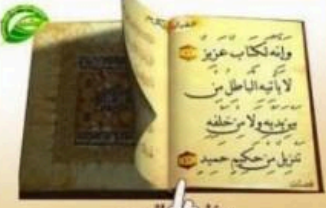 وَإِنَّهُ لَكِتَابٌ عَزِيزٌ
لَا يَأْتِيهِ الْبَاطِلُ مِن
بَيْنِ يَدَيْهِ وَلَا مِنْ خَلْفِهِ
تَنزِيلٌ مِّنْ حَكِيمٍ حَمِيدٍ